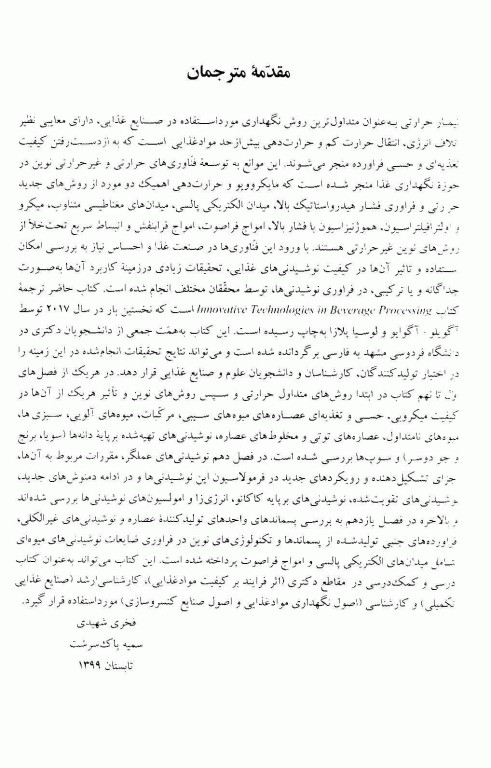 مقدّمهٔ مترجمان
تیمار حرارتی به‌عنوان متداول‌ترین روش نگهداری مورداستفاده در صنایع غذایی، دارای معایبی نظیر
اتلاف انرژی، انتقال حرارت کم و حرارت‌دهی بیش‌ازحد موادغذایی است که به ازدست‌رفتن کیفیت
تغذیه‌ای و حسی فراورده منجر می‌شوند. این موانع به توسعهٔ فنّاوری‌های حرارتی و غیرحرارتی نوین در
حوزهٔ نگهداری غذا منجر شده است که مایکروویو و حرارت‌دهی اهمیک دو مورد از روش‌های جدید
حرارتی و فراوری فشار هیدرواستاتیک بالا، میدان الکتریکی پالسی، میدان‌های مغناطیسی متناوب، میکرو
و اولترافیلتراسیون، هموژنیزاسیون با فشار بالا، امواج فراصوت، امواج فرابنفش و انبساط سریع تحت‌خلأ از
روش‌های نوین غیرحرارتی هستند. با ورود این فنّاوری‌ها در صنعت غذا و احساس نیاز به بررسی امکان
استفاده و تاثیر آن‌ها در کیفیت نوشیدنی‌های غذایی، تحقیقات زیادی درزمینهٔ کاربرد آن‌ها به‌صورت
جداگانه و یا ترکیبی، در فراوری نوشیدنی‌ها، توسط محقّقان مختلف انجام شده است. کتاب حاضر ترجمهٔ
کتاب Innovative Technologies in Beverage Processing است که نخستین بار در سال ۲۰۱۷ توسط
آگویلو - آگوایو و لوسیا پلازا به‌چاپ رسیده است. این کتاب به‌همّت جمعی از دانشجویان دکتری در
دانشگاه فردوسی مشهد به فارسی برگردانده شده است و می‌تواند نتایج تحقیقات انجام‌شده در این زمینه را
در اختیار تولیدکنندگان، کارشناسان و دانشجویان علوم و صنایع غذایی قرار دهد. در هریک از فصل‌های
اول تا نهم کتاب در ابتدا روش‌های متداول حرارتی و سپس روش‌های نوین و تأثیر هریک از آن‌ها در
کیفیت میکروبی، حسی و تغذیه‌ای عصاره‌های میوه‌های سیبی، مرکّبات، میوه‌های آلویی، سبزی‌ها،
میوه‌های نامتداول، عصاره‌های توتی و مخلوط‌های عصاره، نوشیدنی‌های تهیه‌شده برپایهٔ دانه‌ها (سویا، برنج
و جو دوسر) و سوپ‌ها بررسی شده است. در فصل دهم نوشیدنی‌های عملگر، مقررات مربوط به آن‌ها،
اجزای تشکیل‌دهنده و رویکردهای جدید در فرمولاسیون این نوشیدنی‌ها و در ادامه دمنوش‌های جدید،
نوشیدنی‌های تقویت‌شده، نوشیدنی‌های برپایه کاکائو، انرژی‌زا و امولسیون‌های نوشیدنی‌ها بررسی شده‌اند
و بالاخره در فصل یازدهم به بررسی پسماندهای واحدهای تولیدکنندهٔ عصاره و نوشیدنی‌های غیرالکلی،
فراورده‌های جنبی تولیدشده از پسماندها و تکنولوژی‌های نوین در فراوری ضایعات نوشیدنی‌های میوه‌ای
شامل میدان‌های الکتریکی پالسی و امواج فراصوت پرداخته شده است. این کتاب می‌تواند به‌عنوان کتاب
درسی و کمک‌درسی در مقاطع دکتری (اثر فرایند بر کیفیت موادغذایی)، کارشناسی‌ارشد (صنایع غذایی
تکمیلی) و کارشناسی (اصول نگهداری موادغذایی و اصول صنایع کنسروسازی) مورداستفاده قرار گیرد.
فخری شهیدی
سمیه پاک‌سرشت
تابستان ۱۳۹۹